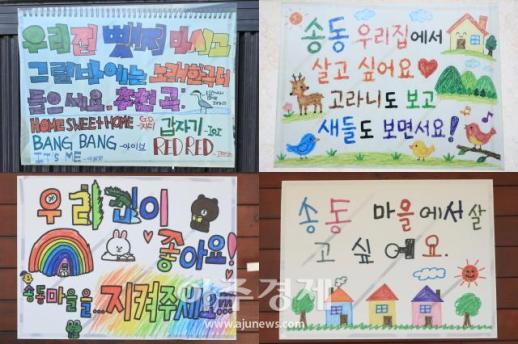 우리집 뺏지 마시고
그럴 바에는 노래 한 곡
들으세요. 추천 곡.
HOME SWEET HOME
갑자기-IOI
BANG BANG -아이브
RED RED
IT'S ME
송동 우리집에서
살고 싶어요
고라니도 보고
새들도 보면서요!
우리집이
좋아요!
송동마을을...지켜주세요...
송동 마을에서 살
고 싶어요.
아주경제
www.ajunews.com